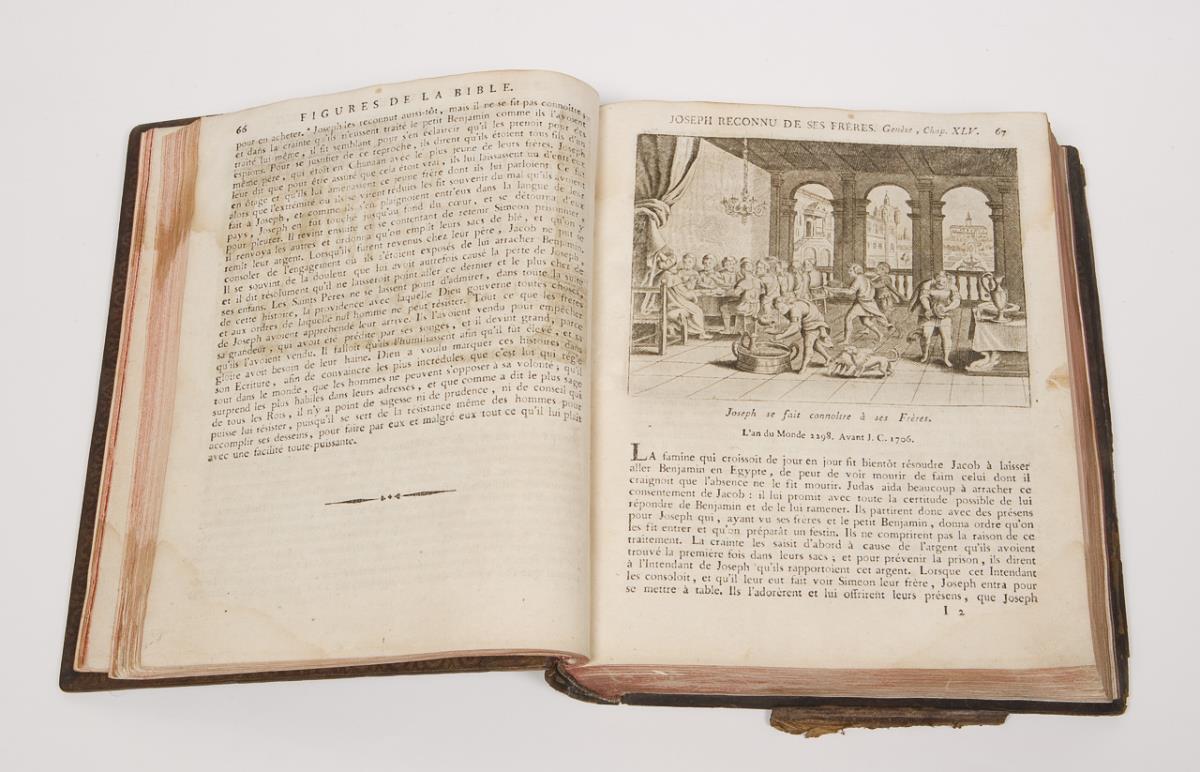 66
FIGURES DE LA BIBLE.
pour en acheter. Joseph les reconnut aussi-tôt, mais il ne se fit pas connoître,
et dans la crainte qu'ils n'eussent traité le petit Benjamin comme ils l'avoient
traité lui même, il fit semblant pour s'en éclaircir qu'il les prenoit pour des
espions. Pour se justifier de ce reproche, ils dirent qu'ils étoient tous fils d'un
même père, qui étoit en Chanaan avec le plus jeune de leurs frères. Joseph
leur dit que pour être assuré que cela étoit vrai, ils lui laissassent un d'entr'eux
en ôtage et qu'ils lui amenassent ce jeune frère dont ils lui parloient. Ce fut
alors que l'extrémité où ils se virent réduits les fit souvenir du mal qu'ils avoient
fait à Joseph, et comme ils s'en plaignoient entr'eux dans la langue de leur
pays, Joseph en fut touché jusqu'au fond du cœur, et se détourna d'eux
pour pleurer. Il revint ensuite et se contentant de retenir Simeon prisonnier,
il renvoya les autres et ordonna qu'on emplît leurs sacs de blé, et qu'on y
remît leur argent. Lorsqu'ils furent revenus chez leur père, Jacob ne put se
consoler de l'engagement où ils s'étoient exposés de lui arracher Benjamin.
Il se souvint de la douleur que lui avoit autrefois causé la perte de Joseph,
et il dit résolument qu'il ne laisseroit point aller ce dernier et le plus cher de
ses enfans. Les Saints Peres ne se lassent point d'admirer, dans toute la suite
de cette histoire, la providence avec laquelle Dieu gouverne toutes choses,
et aux ordres de laquelle nul homme ne peut résister. Tout ce que les frères
de Joseph avoient appréhendé leur arrive. Ils l'avoient vendu pour empêcher
sa grandeur, qui avoit été prédite par ses songes, et il devint grand, parce
qu'ils l'avoient vendu. Il falloit qu'ils l'humiliassent afin qu'il fût élevé, et sa
gloire avoit besoin de leur haine. Dieu a voulu marquer ces histoires dans
son Ecriture, afin de convaincre les plus incrédules que c'est lui qui règle
tout dans le monde, que les hommes ne peuvent s'opposer à sa volonté, qu'il
surprend les plus habiles dans leurs adresses, et que comme a dit le plus sage
de tous les Rois, il n'y a point de sagesse ni de prudence, ni de conseil qui
puisse lui résister, puisqu'il se sert de la résistance même des hommes pour
accomplir ses desseins, pour faire par eux et malgré eux tout ce qu'il lui plaît
avec une facilité toute-puissante.
JOSEPH RECONNU DE SES FRÈRES. Genèse, Chap. XLV. 67
Joseph se fait connoître à ses Frères.
L'an du Monde 2298. Avant J. C. 1706.
LA famine qui croissoit de jour en jour fit bientôt résoudre Jacob à laisser
aller Benjamin en Egypte, de peur de voir mourir de faim celui dont il
craignoit que l'absence ne le fit mourir. Judas aida beaucoup à arracher ce
consentement de Jacob : il lui promit avec toute la certitude possible de lui
répondre de Benjamin et de le lui ramener. Ils partirent donc avec des présens
pour Joseph qui, ayant vu ses frères et le petit Benjamin, donna ordre qu'on
les fit entrer et qu'on préparât un festin. Ils ne comprirent pas la raison de ce
traitement. La crainte les saisit d'abord à cause de l'argent qu'ils avoient
trouvé la première fois dans leurs sacs ; et pour prévenir la prison, ils dirent
à l'Intendant de Joseph qu'ils rapportoient cet argent. Lorsque cet Intendant
les consoloit, et qu'il leur eut fait voir Simeon leur frère, Joseph entra pour
se mettre à table. Ils l'adorèrent et lui offrirent leurs présens, que Joseph
I 2